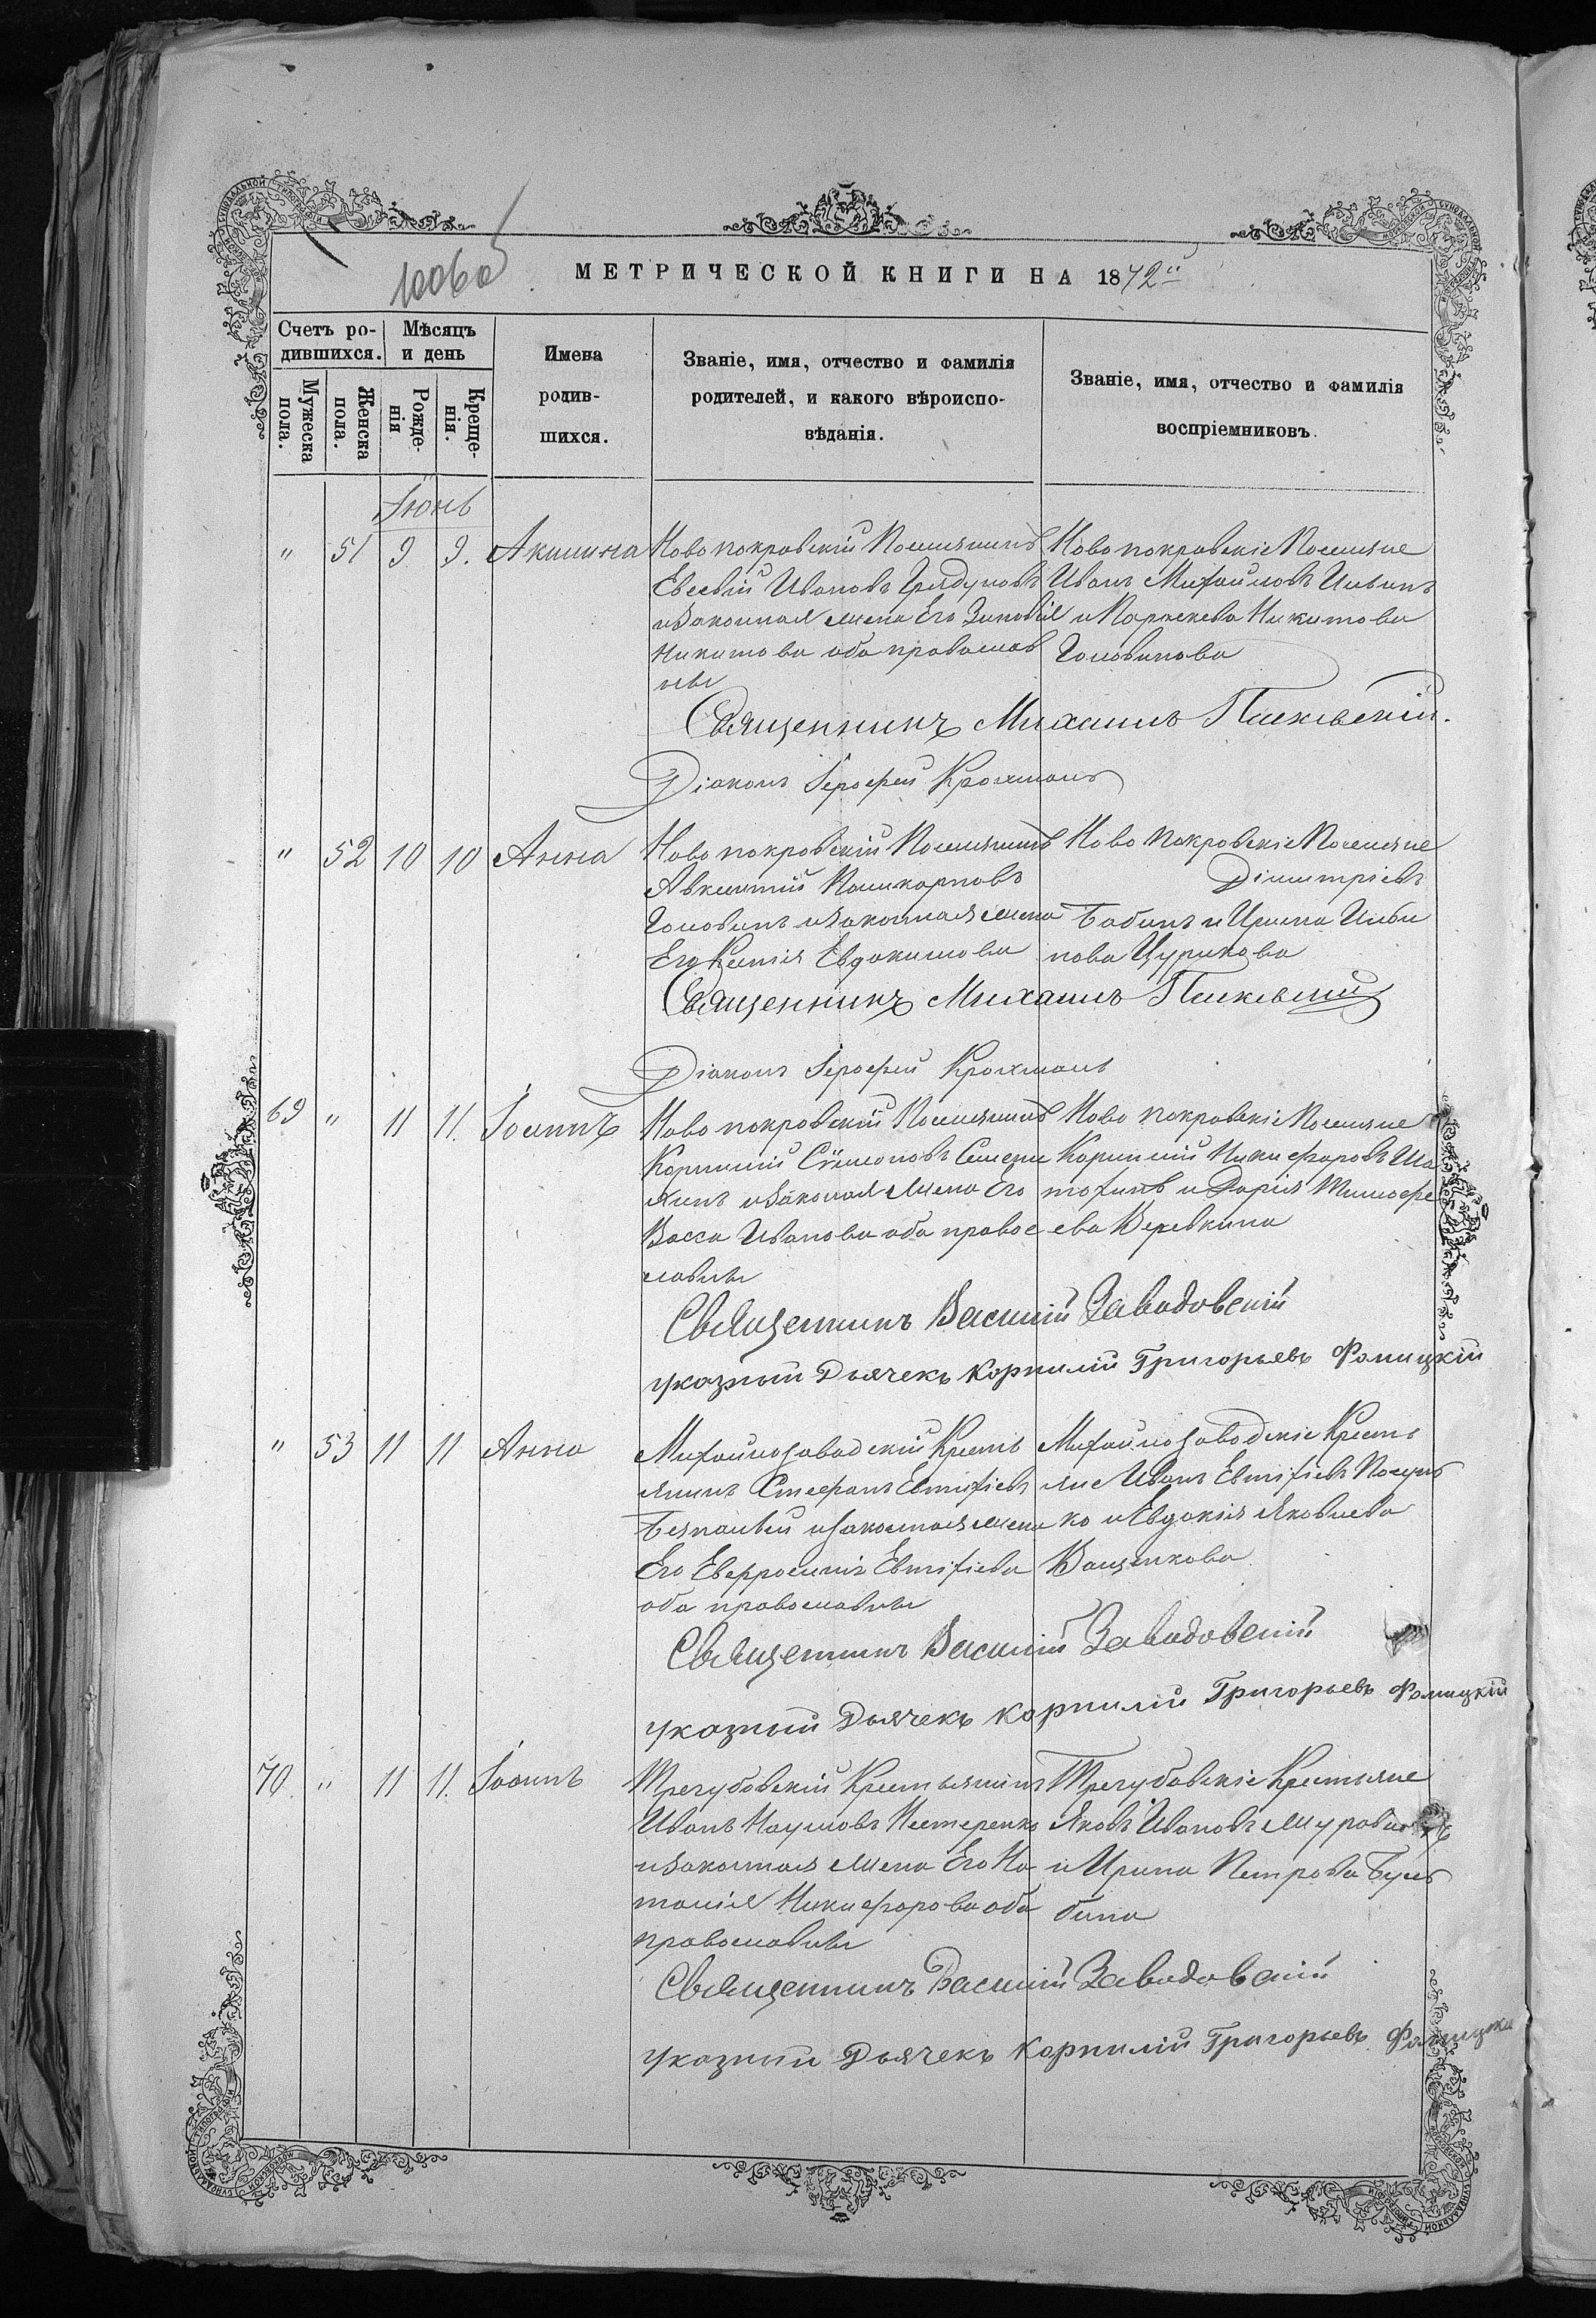 МЕТРИЧЕСКОЙ КНИГИ НА 1872
Счетъ ро-
дившихся.
Мужеска
пола.
Женска
пола.
Мѣсяцъ
и день
Рожде-
нія
Креще-
нія.
Имена
родив-
шихся.
Званіе, имя, отчество и фамилія
родителей, и какого вѣроиспо-
вѣданія.
Званіе, имя, отчество и фамилія
воспріемниковъ.
Іюнь
" 51 9 9. Акилина
Новопокровскій Поселянинъ
Евсевій Ивановъ
и законная жена Его Зиновія
Никитова оба православ
ны
Новопокровскіе Поселяне
Иванъ Михайловъ
и Параскева Никитова
Голованова
Священникъ Михаилъ
Діаконъ Іерофей Крохмаль
" 52 10 10 Анна
Новопокровскій Поселянинъ
Авксентій Поликарповъ
Голованъ и законная жена
Его Ксенія Евдокимова
Ново покровскіе Поселяне
Димитріевъ
Бабанъ и Ирина
Цурикова
Священникъ Михаилъ
Діаконъ Іерофей Крохмаль
69 " 11 11. Іоаннъ
Новопокровскій Поселянинъ
Корнилій Сѵмеоновъ
и законая жена Его
Васса Иванова оба правос
лавны
Ново покровскіе Поселяне
Корнилій Никифоровъ Ша
тохинъ и Дарія Тимофе
ева Веревкина
Священникъ Василій Заводовскій
указный Дьячекъ Корнилій Григорьевъ Фомицкій
" 53 11 11 Анна
Михайлозаводскій Кресть
янинъ Стефанъ Евтихіевъ
и законная жена
Его Евфросинія Евтихіева
оба православны
Михайлозаводскіе Кресть
яне Иванъ Евтихіевъ
ко и Евдокія Яковлева
Ващенкова
Священникъ Василій Заводовскій
указный Дьячекъ Корнилій Григорьевъ Фомицкій
70. " 11 11. Іоаннъ
Трегубовскій Крестьянинъ
Иванъ Наумовъ Нестеренко
и законная жена Его На
талія Никифорова оба
православны
Трегубовскіе Крестьяне
Яковъ Ивановъ
и Ирина Петрова
бина
Священникъ Василій Заводовскій
указный Дьячекъ Корнилій Григорьевъ